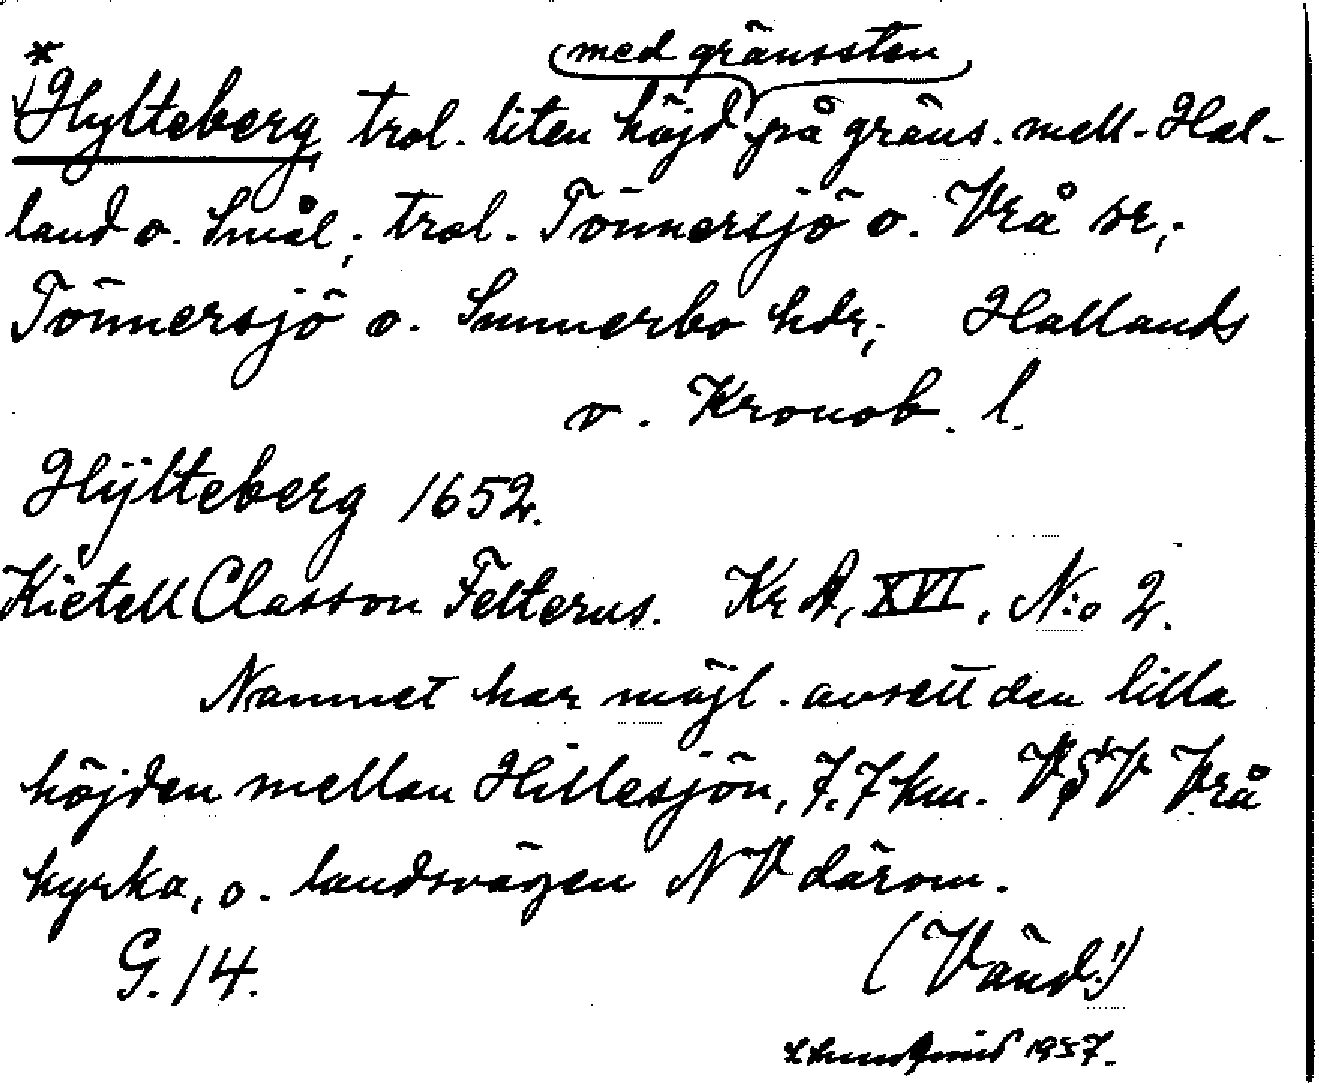 med gränssten
*Hylteberg trol. liten höjd på gräns. mell. Hal-
land o. Smål.; trol. Tönnersjö o. Vrå sr,;
Tönnersjö o. Sunnerbo hdr,; Hallands
o. Kronob. l.
Hÿlteberg 1652.
Kietell Classon Felterus. Kr A, XVI, N:o 2.
Namnet har möjl. avsett den lilla
höjden mellan Hillesjön, 7,7 km. VSV Vrå
kyrka, o. landsvägen NV därom.
G. 14.
(Vänd!)
1957.